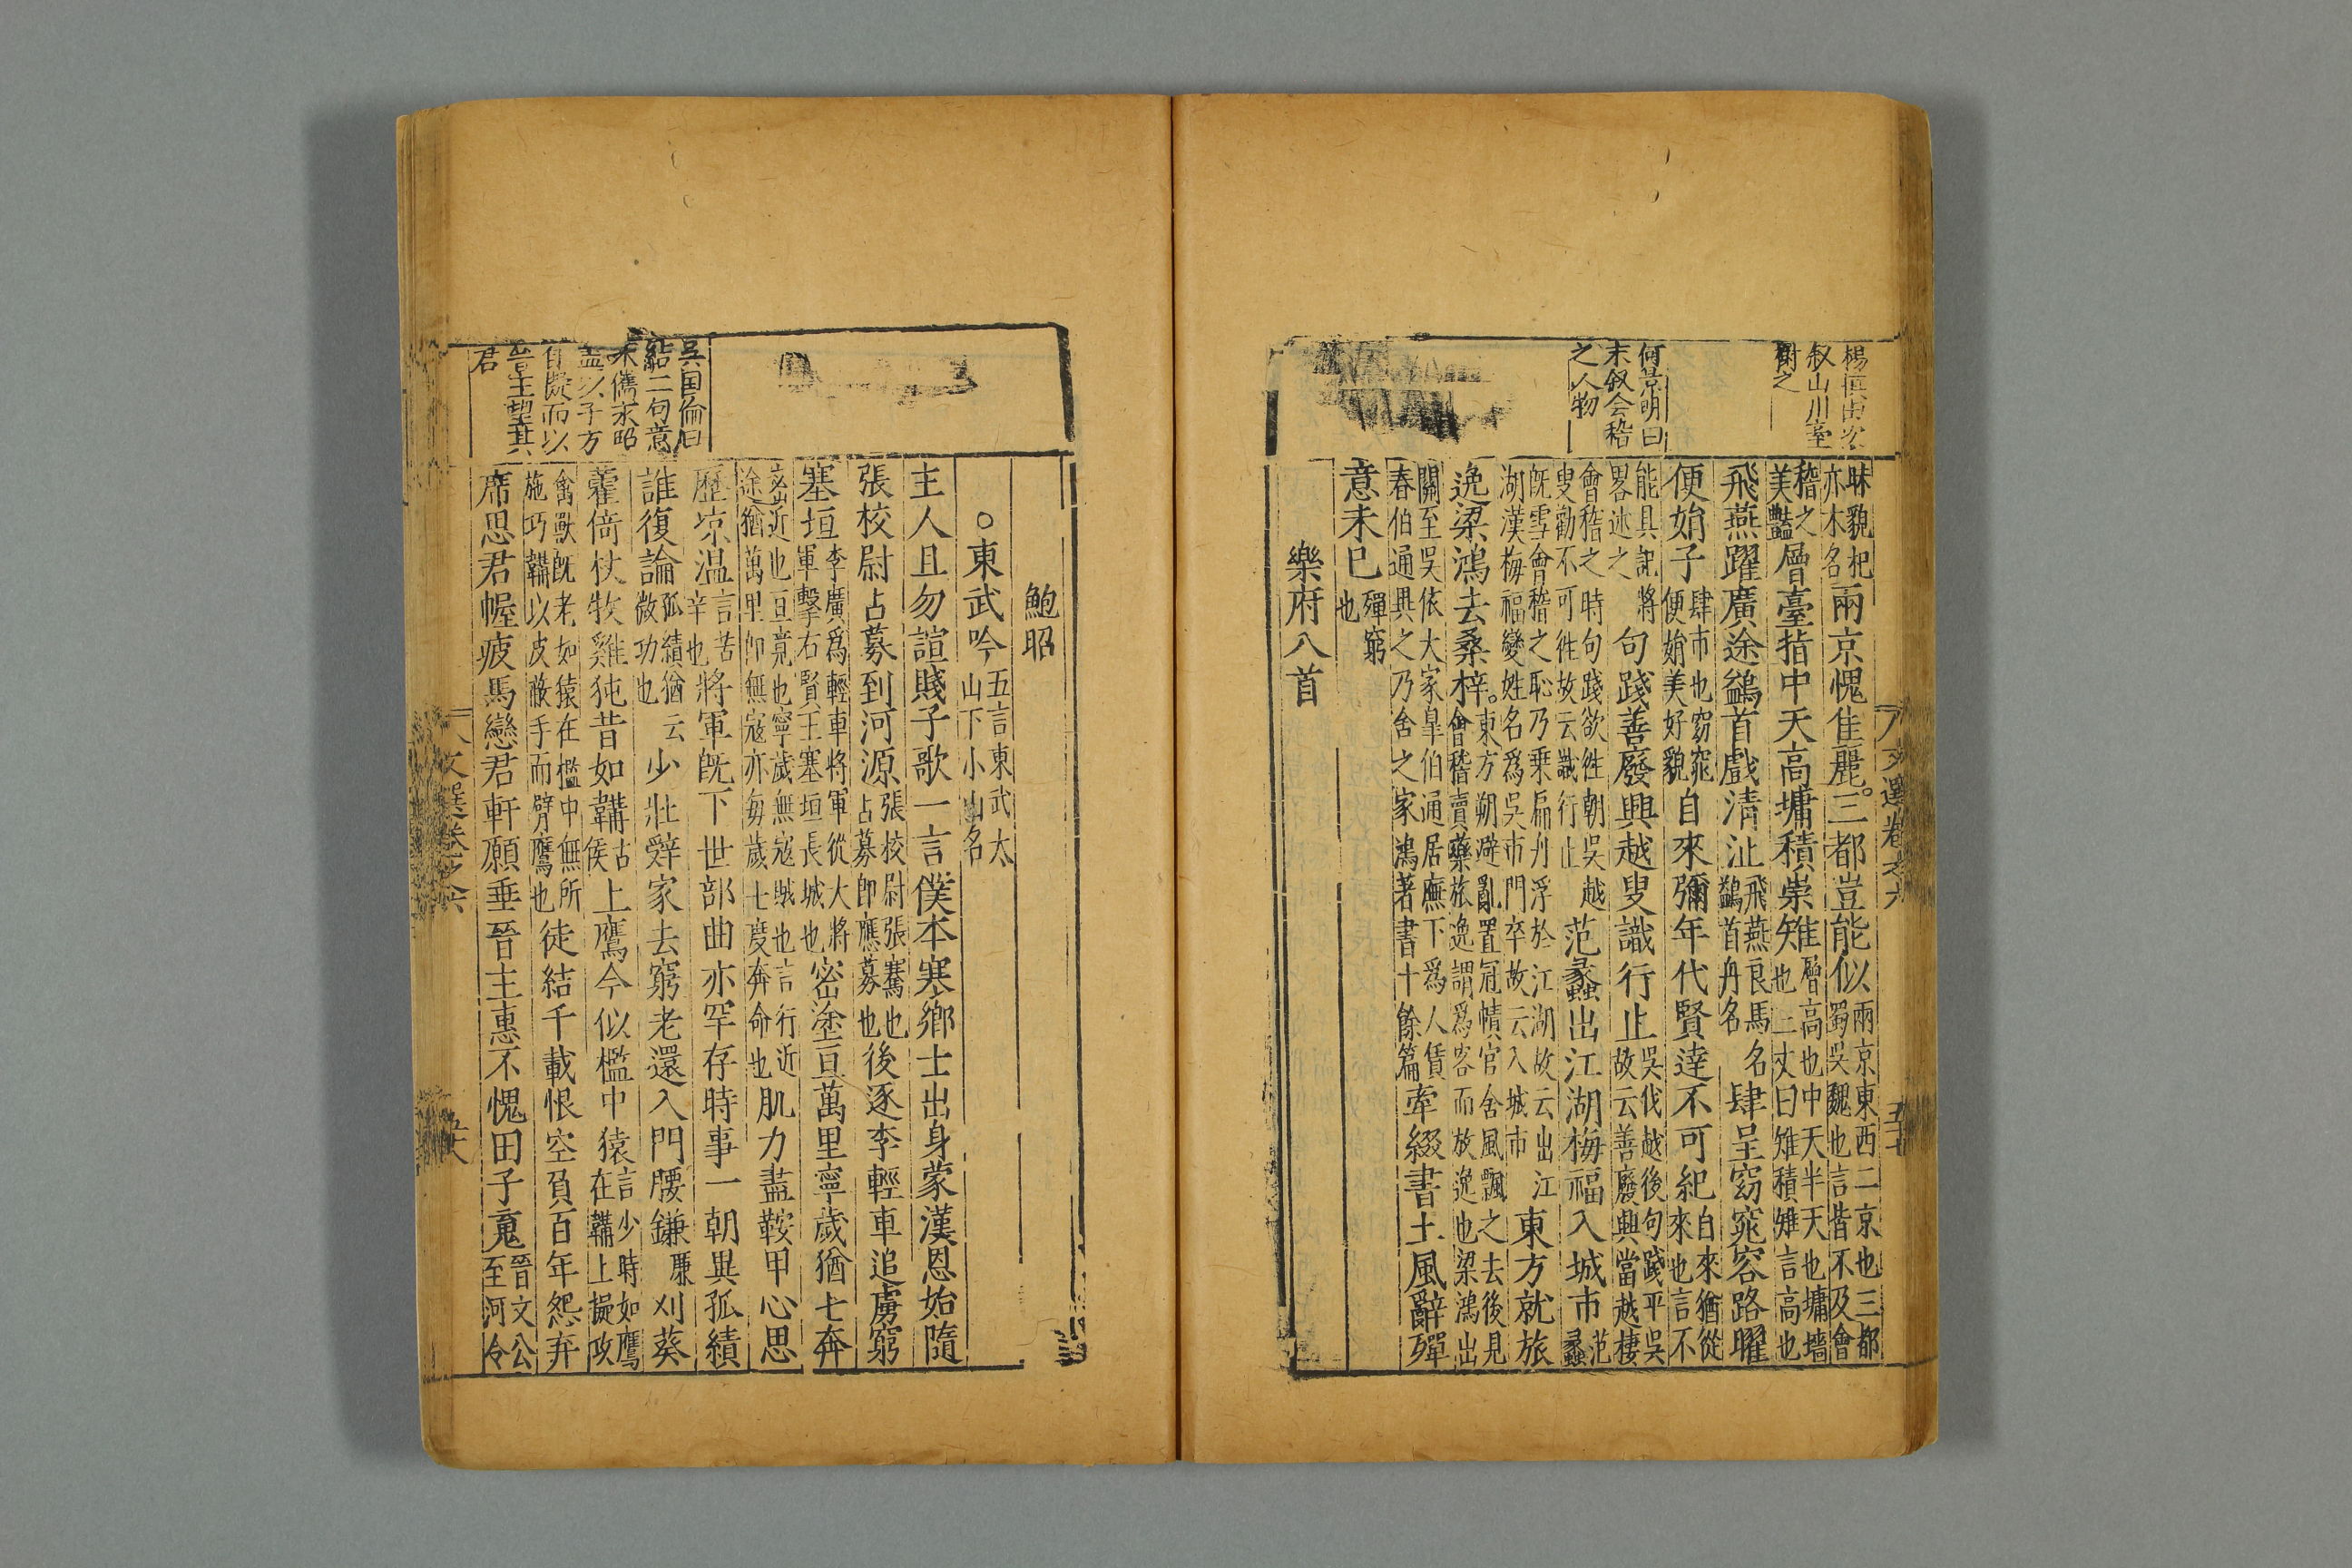 楊慎曰次
叙山川臺
榭之
何景明曰
末叙会稽
之人物
文選卷之六
昧貌杞亦木名兩京愧佳麗。三都豈能似兩京東西二京也三都蜀吳魏也言皆不及會
稽之美豔層臺指中天高墉積崇雉層高也中天半天也墉墻也三丈曰雉積雉言高也
飛燕躍廣途鷁首戲清沚飛燕良馬名鷁首舟名肆呈窈窕容路曜
便娟子肆市也窈窕便娟美好貌自來彌年代賢達不可紀自來猶從來也言不
能具記將畧述之句踐善廢興越叟識行止吳伐越後句踐平吳故云善廢興當越棲
會稽之時句踐欲徃朝吳越叟勸不可徃故云識行止范蠡出江湖梅福入城市范蠡
旣雪會稽之恥乃乗扁舟浮於江湖故云出江湖漢梅福變姓名爲吳市門卒故云入城市東方就旅
逸梁鴻去桑梓。東方朔避亂置冠幘官舍風飄之去後見會稽賣藥旅逸謂爲客而放逸也梁鴻出
關至吳依大家臯伯通居廡下爲人賃春伯通異之乃舍之家鴻著書十餘篇牽綴書土風辭殫
意未已殫窮也
樂府八首
吳国倫曰
結二句意
味儁永昭
盖以子方
自擬而以
晉主望其
君
鮑昭
○東武吟五言東武太山下小山名
主人且勿諠賤子歌一言僕本寒鄉士出身蒙漢恩始隨
張校尉占募到河源張校尉張騫也占募卽應募也後逐李輕車追虜窮
塞垣李廣爲輕車將軍從大將軍擊右賢王塞垣長城也密塗亘萬里寧歲猶七奔
密近也亘竟也寧歲無寇賊也言行近途猶萬里卽無寇亦每歲七度奔命也肌力盡鞍甲心思
歷凉温言苦辛也將軍旣下世部曲亦罕存時事一朝異孤績
誰復論孤績猶云微功也少壯辤家去窮老還入門腰鎌廉刈葵
藿倚杖牧雞㹠昔如韝古侯上鷹今似檻中猿言少時如鷹在韝上擬攻
禽獸旣老如猿在檻中無所施巧韝以皮蔽手而臂鷹也徒結千載恨空負百年怨弃
席思君幄疲馬戀君軒願垂晉主惠不愧田子䰟晉文公至河令
文選卷之六